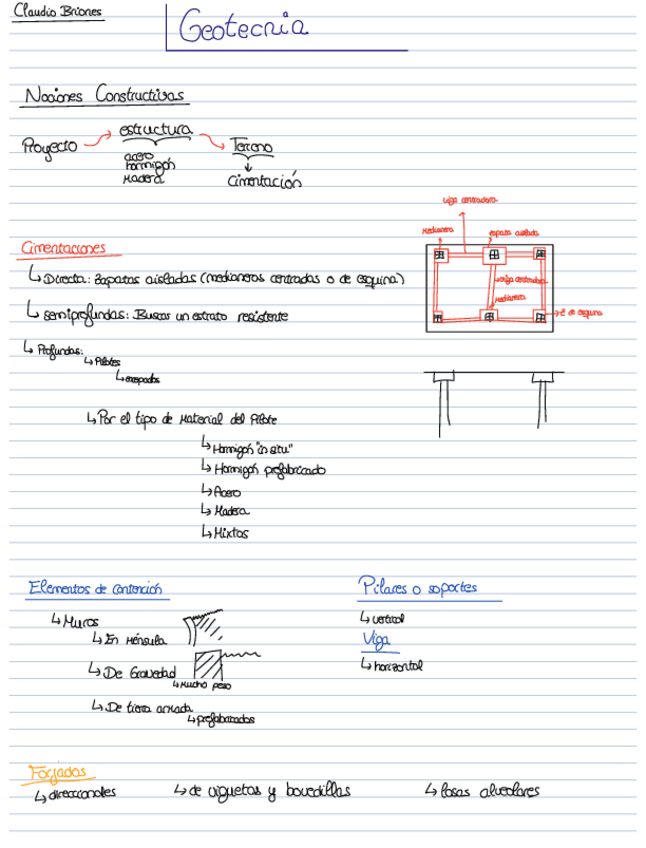 Claudio Briones
Geotecnia
Nociones Constructivas
Proyecto
estructura
Terreno
acero
hormigón
Madera
Cimentación
viga centradora
Medianera
zapata aislada
Cimentaciones
viga centradora
Directa: Zapatas aisladas (medianeros centradas o de esquina)
Medianera
Z de esquina
semiprofundas: Buscar un estrato resistente
Profundas:
Pilotes
encepados
Por el tipo de Material del Pilote
Hormigón "in situ"
Hormigón prefabricado
Acero
Madera
Mixtos
Elementos de contención
Pilares o soportes
Muros
vertical
En Ménsula
Viga
De Gravedad
horizontal
Mucho peso
De tierra armada
prefabricados
Forjados
direccionales
de viguetas y bovedillas
losas alveolares